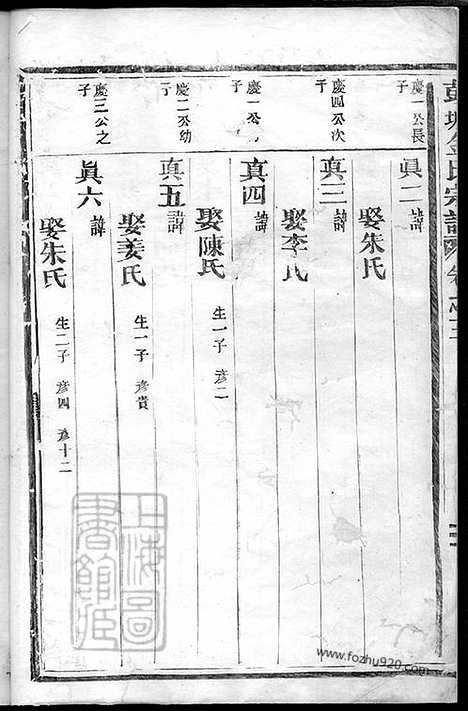 金氏宗譜 卷之三
慶一公長子
眞二 諱
娶朱氏
慶四公次子
真三 諱
娶李氏
慶一公
子
真四 諱
娶陳氏 生一子 彦二
慶二公幼子
真五 諱
娶姜氏 生一子 彦貴
慶三公之子
眞六 諱
娶朱氏 生二子 彦四 彦十二
上海圖書館藏
www.fozhu920.com